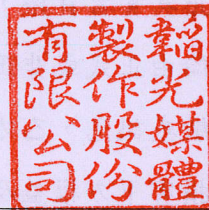 韜光媒體
製作股份
有限公司